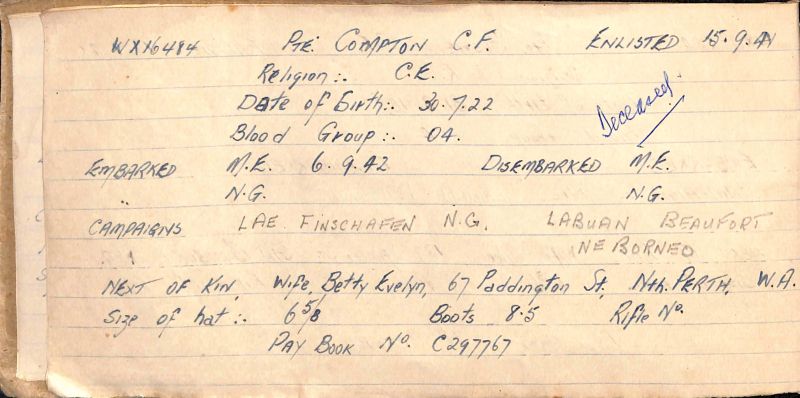 WX16484 PTE. COMPTON C.F. ENLISTED 15.9.41
Religion:. C.E.
Date of birth:. 30.7.22
Deceased.
Blood Group:. O4.
EMBARKED M.E. 6.9.42 DISEMBARKED M.E.
" N.G. N.G.
CAMPAIGNS LAE FINSCHAFEN N.G. LABUAN BEAUFORT
NE BORNEO
NEXT OF KIN, Wife, Betty Evelyn, 67 Paddington St, Nth. PERTH, W.A.
Size of hat:. 6 5/8 Boots 8.5 Rifle No.
PAY BOOK No. C297767